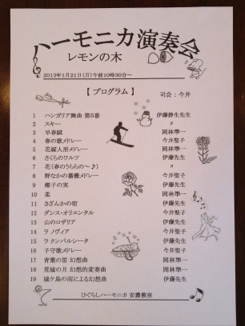 ハーモニカ演奏会
レモンの木
2013年1月21日（月）午前10時30分～
【 プログラム 】 司会：今井
1 ハンガリア舞曲 第5番 伊藤静生先生
2 スキー 〃
3 早春賦 岡林準一
4 春の歌メドレー 今井聖子
5 花嫁人形メドレー 岡林準一
6 さくらのワルツ 伊藤先生
7 花（春のうららの～♪） 〃
8 野なかの薔薇メドレー 今井聖子
9 椰子の実 伊藤先生
10 柔 岡林準一
11 さざんかの宿 伊藤先生
12 ダンス・オリエンタル 今井聖子
13 山のロザリア 伊藤先生
14 ラ ノヴィア 今井聖子
15 ラ クンパルシータ 伊藤先生
16 子守歌メドレー 今井聖子
17 青葉の笛 幻想曲 岡林準一
18 荒城の月 幻想的変奏曲 岡林準一
19 城ケ島の雨による幻想曲 伊藤先生
ひぐらしハーモニカ 教室